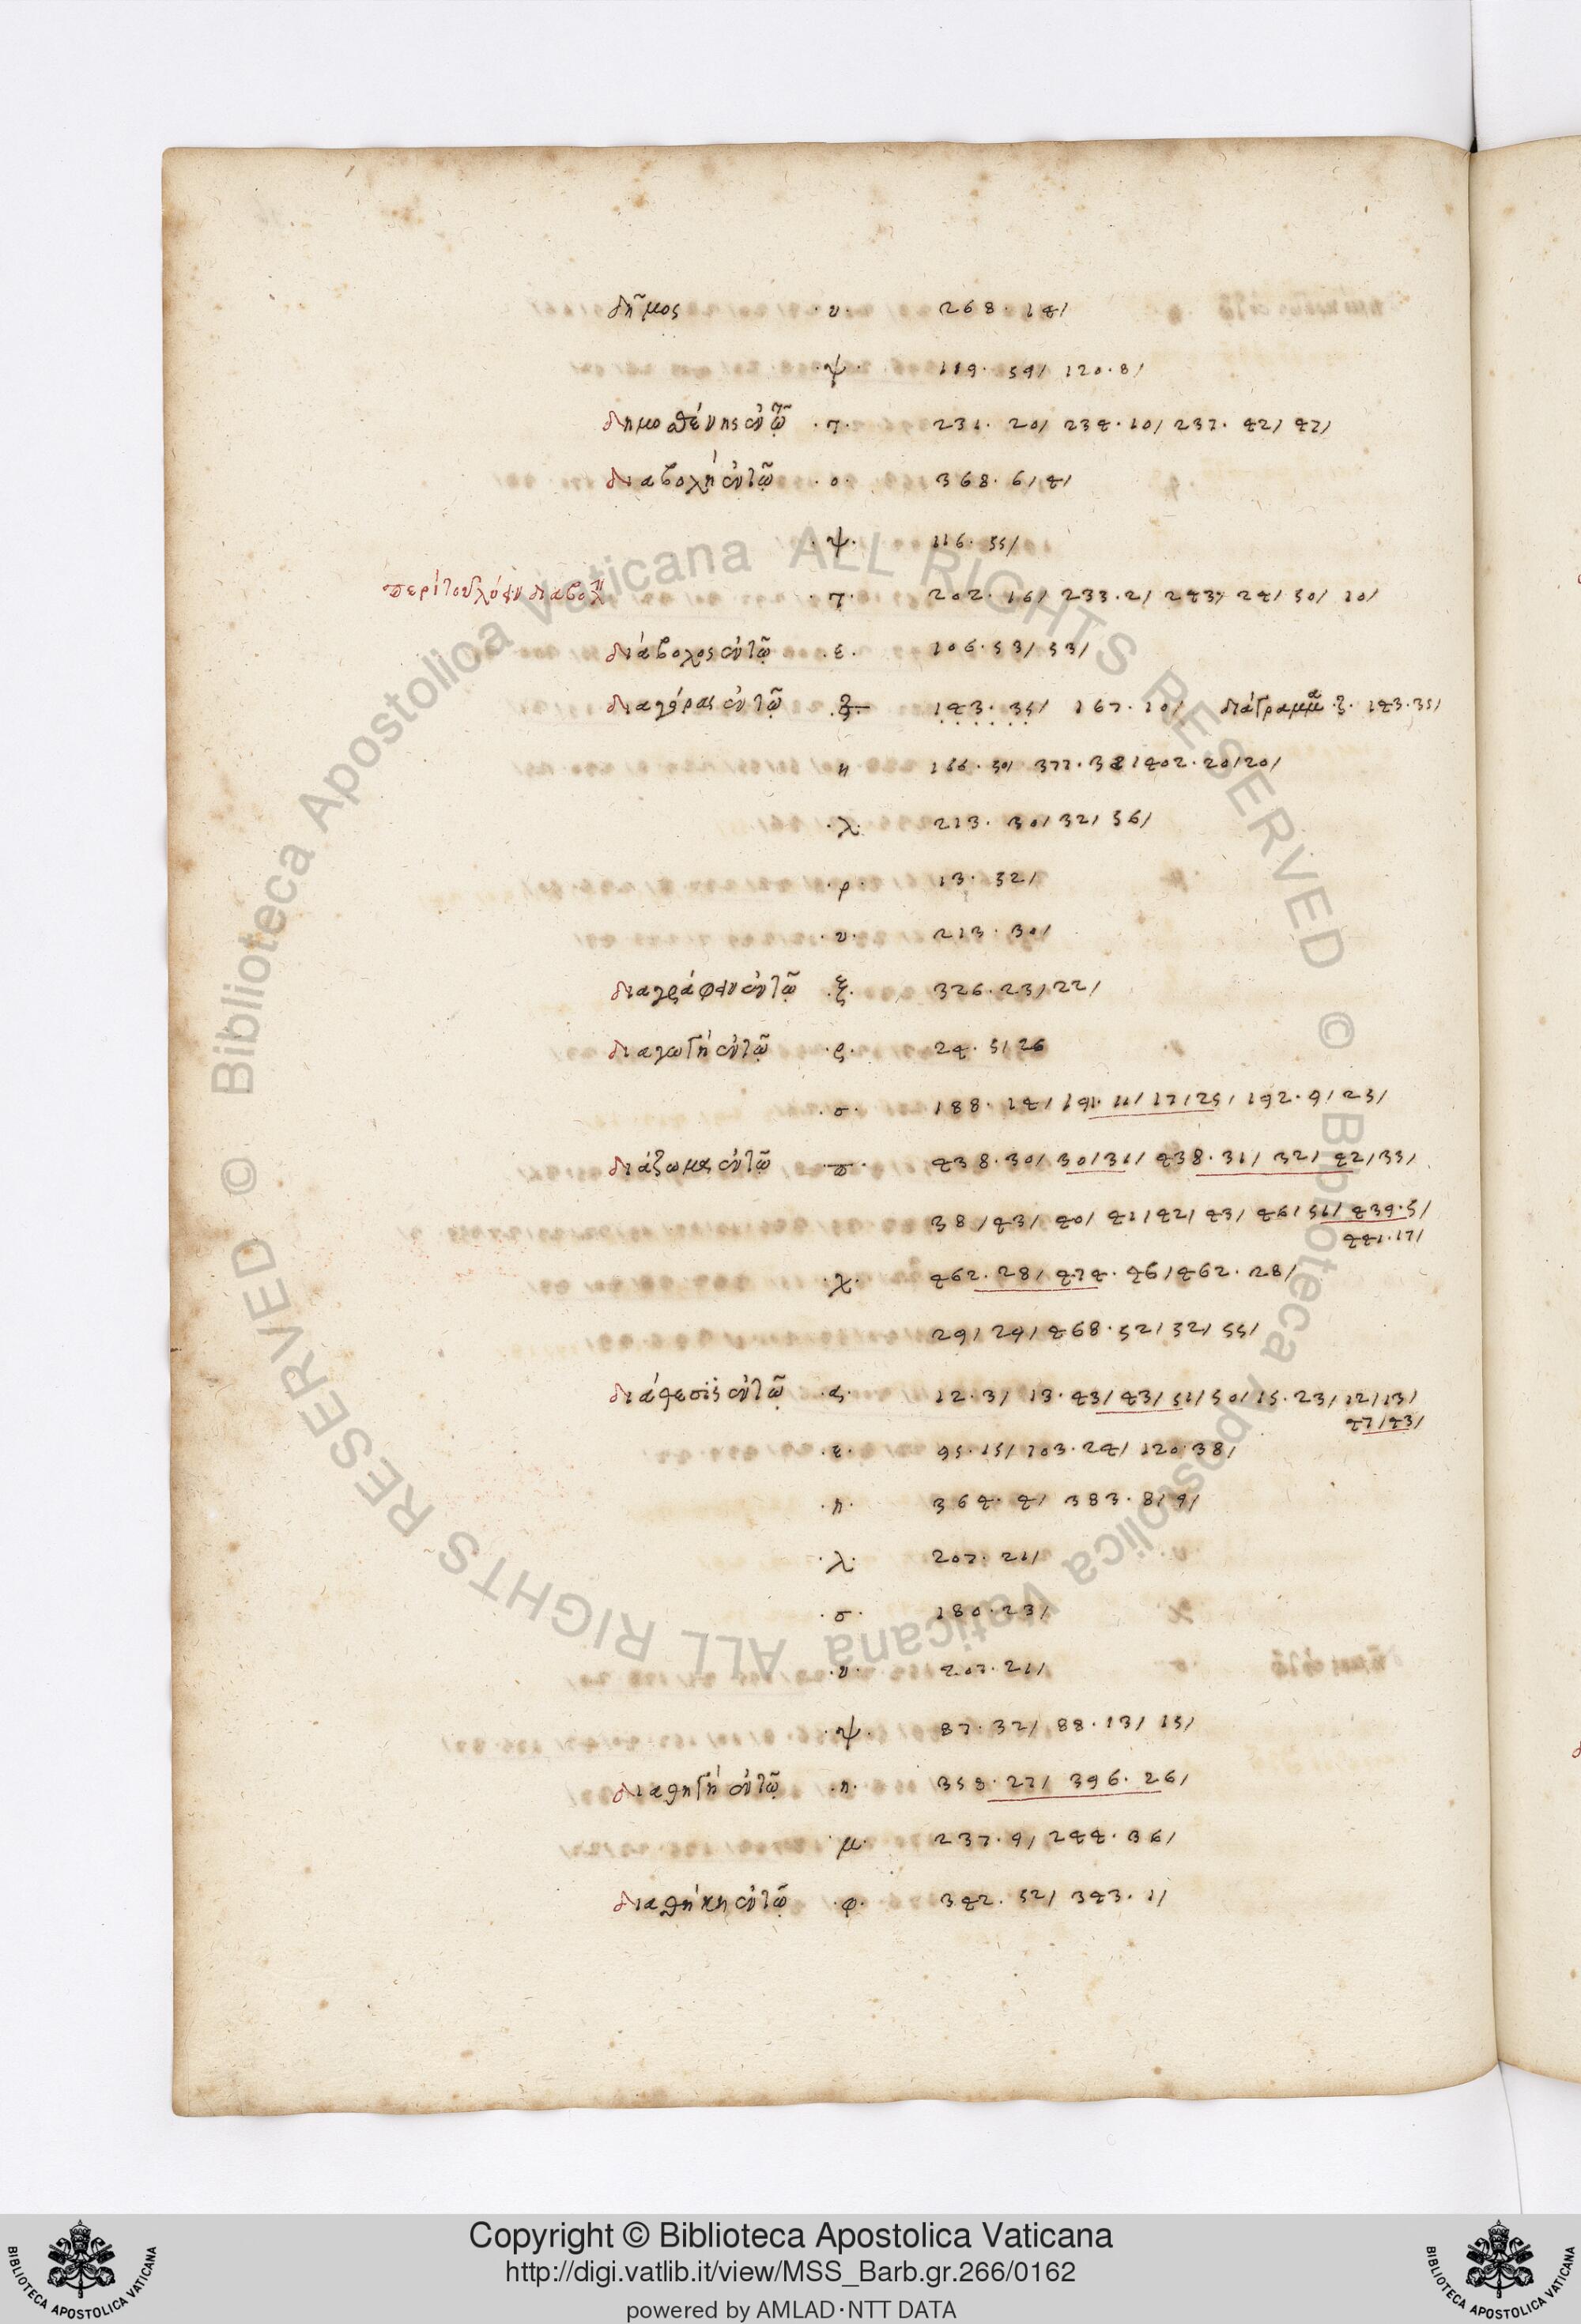 δῆμος ·υ· 268. 14/
·ψ· 119. 59/ 120. 8/
δημοσθένης ἐν τῷ ·π· 231. 20/ 234. 10/ 237. 42/ 47/
διαβολὴ ἐν τῷ ·ο· 368. 6/ 4/
·ψ· 116. 55/
περὶ τοῦ λύειν διαβολὴν ·π· 202. 16/ 233. 2/ 243/ 24/ 50/ 10/
διάβολος ἐν τῷ ·ε· 106. 53/ 53/
διαγόρας ἐν τῷ ·ζ· 143. 35/ 167. 10/ διάγραμμα ·ζ· 143. 35/
η 166. 50/ 377. 38/ 402. 20/ 20/
·λ· 213. 30/ 32/ 56/
·ρ· 13. 52/
·υ· 213. 30/
διαγράφειν ἐν τῷ ·ξ· 326. 23/ 22/
διαγωγὴ ἐν τῷ ·ρ· 24. 5/ 26
·σ· 188. 14/ 191. 11/ 17/ 25/ 192. 9/ 25/
διάζωμα ἐν τῷ ·π· 438. 30/ 30/ 31/ 438. 31/ 32/ 42/ 33/
38/ 43/ 40/ 41/ 42/ 43/ 46/ 51/ 439. 5/
441. 17/
·χ· 462. 28/ 474. 46/ 462. 28/
29/ 29/ 468. 52/ 52/ 55/
διάθεσις ἐν τῷ ·α· 12. 3/ 13. 43/ 43/ 51/ 50/ 15. 23/ 12/ 13/
47/ 43/
·ε· 95. 15/ 103. 24/ 120. 38/
·η· 364. 4/ 383. 8/ 9/
·λ· 207. 21/
·σ· 180. 23/
·υ· 207. 21/
·ψ· 87. 32/ 88. 13/ 15/
διαθηγὴ ἐν τῷ ·η· 358. 27/ 396. 26/
·μ· 237. 9/ 244. 36/
διαθήκη ἐν τῷ ·φ· 342. 52/ 343. 1/
© Biblioteca Apostolica Vaticana ALL RIGHTS RESERVED © Biblioteca Apostolica Vaticana ALL RIGHTS RESERVED
Copyright © Biblioteca Apostolica Vaticana
http://digi.vatlib.it/view/MSS_Barb.gr.266/0162
powered by AMLAD·NTT DATA
BIBLIOTECA APOSTOLICA VATICANA
BIBLIOTECA APOSTOLICA VATICANA